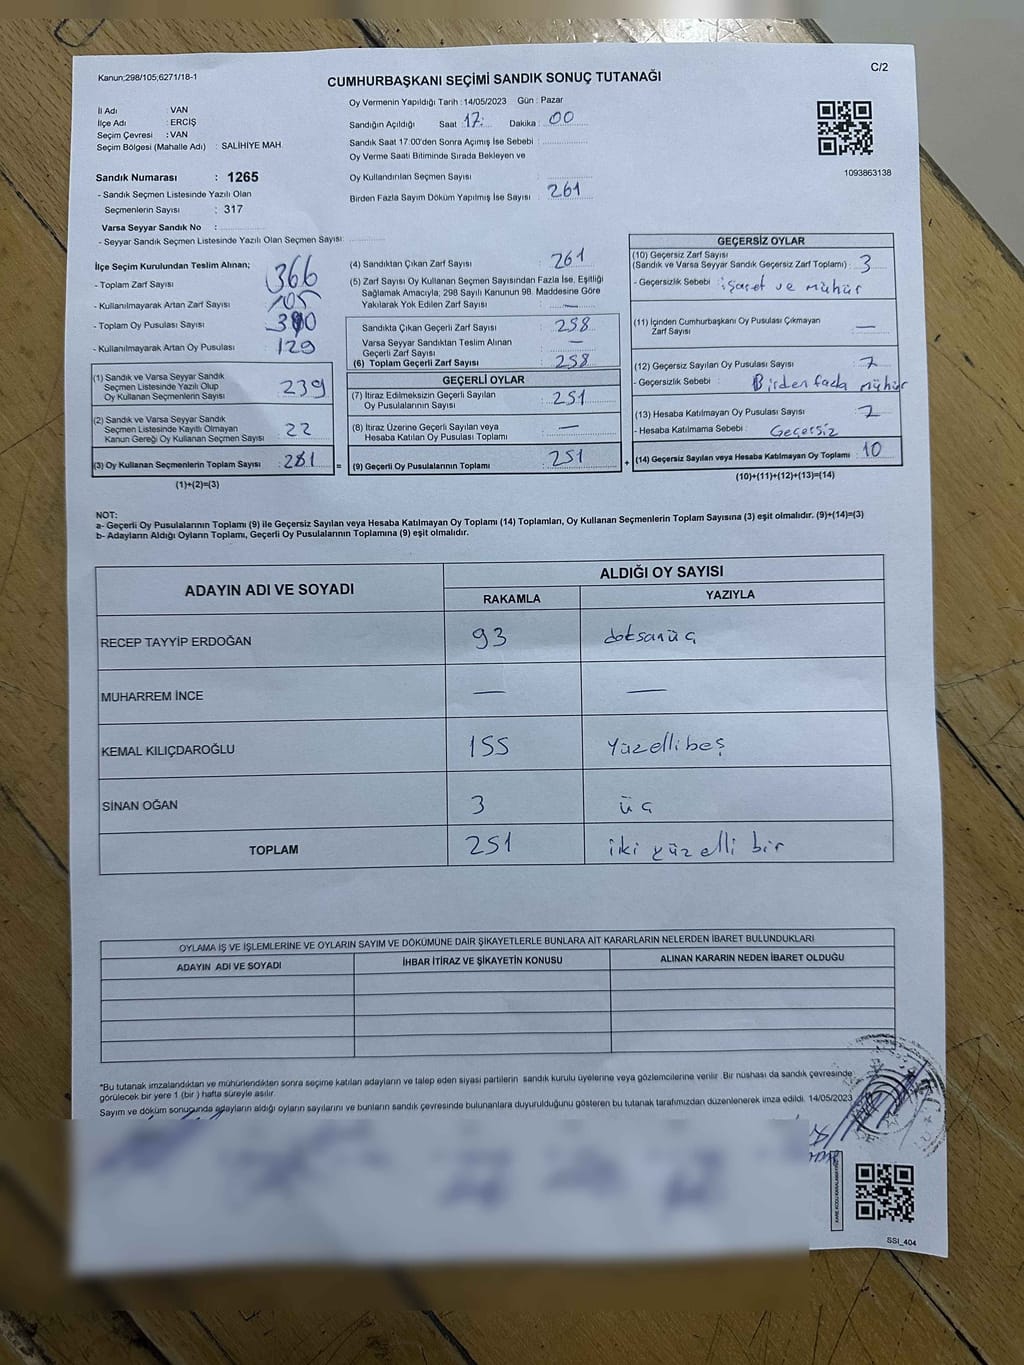 Kanun;298/105;6271/18-1
C/2
CUMHURBAŞKANI SEÇİMİ SANDIK SONUÇ TUTANAĞI
İl Adı : VAN
İlçe Adı : ERCİŞ
Seçim Çevresi : VAN
Seçim Bölgesi (Mahalle Adı) : SALİHİYE MAH.
Sandık Numarası : 1265
- Sandık Seçmen Listesinde Yazılı Olan
Seçmenlerin Sayısı : 317
Varsa Seyyar Sandık No :
- Seyyar Sandık Seçmen Listesinde Yazılı Olan Seçmen Sayısı:
Oy Vermenin Yapıldığı Tarih : 14/05/2023 Gün : Pazar
Sandığın Açıldığı Saat 17: Dakika : 00
Sandık Saat 17:00'den Sonra Açımış İse Sebebi :
Oy Verme Saati Bitiminde Sırada Bekleyen ve
Oy Kullandırılan Seçmen Sayısı :
Birden Fazla Sayım Döküm Yapılmış İse Sayısı : 261
1093863138
İlçe Seçim Kurulundan Teslim Alınan;
- Toplam Zarf Sayısı 366
- Kullanılmayarak Artan Zarf Sayısı 105
- Toplam Oy Pusulası Sayısı
- Kullanılmayarak Artan Oy Pusulası 129
(1) Sandık ve Varsa Seyyar Sandık
Seçmen Listesinde Yazılı Olup
Oy Kullanan Seçmenlerin Sayısı : 239
(2) Sandık ve Varsa Seyyar Sandık
Seçmen Listesinde Kayıtlı Olmayan
Kanun Gereği Oy Kullanan Seçmen Sayısı : 22
(3) Oy Kullanan Seçmenlerin Toplam Sayısı : 261 =
(1)+(2)=(3)
(4) Sandıktan Çıkan Zarf Sayısı : 261
(5) Zarf Sayısı Oy Kullanan Seçmen Sayısından Fazla İse, Eşitliği
Sağlamak Amacıyla, 298 Sayılı Kanunun 98. Maddesine Göre
Yakılarak Yok Edilen Zarf Sayısı : —
Sandıkta Çıkan Geçerli Zarf Sayısı : 258
Varsa Seyyar Sandıktan Teslim Alınan
Geçerli Zarf Sayısı : —
(6) Toplam Geçerli Zarf Sayısı : 258
GEÇERLİ OYLAR
(7) İtiraz Edilmeksizin Geçerli Sayılan
Oy Pusulalarının Sayısı : 251
(8) İtiraz Üzerine Geçerli Sayılan veya
Hesaba Katılan Oy Pusulası Toplamı : —
(9) Geçerli Oy Pusulalarının Toplamı : 251 +
GEÇERSİZ OYLAR
(10) Geçersiz Zarf Sayısı
(Sandık ve Varsa Seyyar Sandık Geçersiz Zarf Toplamı) : 3
- Geçersizlik Sebebi : işaret ve mühür
(11) İçinden Cumhurbaşkanı Oy Pusulası Çıkmayan
Zarf Sayısı : —
(12) Geçersiz Sayılan Oy Pusulası Sayısı : 7
- Geçersizlik Sebebi : Birden fazla mühür
(13) Hesaba Katılmayan Oy Pusulası Sayısı :
- Hesaba Katılmama Sebebi : Geçersiz
(14) Geçersiz Sayılan veya Hesaba Katılmayan Oy Toplamı : 10
(10)+(11)+(12)+(13)=(14)
NOT:
a- Geçerli Oy Pusulalarının Toplamı (9) ile Geçersiz Sayılan veya Hesaba Katılmayan Oy Toplamı (14) Toplamları, Oy Kullanan Seçmenlerin Toplam Sayısına (3) eşit olmalıdır. (9)+(14)=(3)
b- Adayların Aldığı Oyların Toplamı, Geçerli Oy Pusulalarının Toplamına (9) eşit olmalıdır.
ADAYIN ADI VE SOYADI
ALDIĞI OY SAYISI
RAKAMLA YAZIYLA
RECEP TAYYİP ERDOĞAN 93 doksanüç
MUHARREM İNCE — —
KEMAL KILIÇDAROĞLU 155 Yüzellibeş
SİNAN OĞAN 3 üç
TOPLAM 251 iki yüzelli bir
OYLAMA İŞ VE İŞLEMLERİNE VE OYLARIN SAYIM VE DÖKÜMÜNE DAİR ŞİKAYETLERLE BUNLARA AİT KARARLARIN NELERDEN İBARET BULUNDUKLARI
ADAYIN ADI VE SOYADI İHBAR İTİRAZ VE ŞİKAYETİN KONUSU ALINAN KARARIN NEDEN İBARET OLDUĞU
*Bu tutanak imzalandıktan ve mühürlendikten sonra seçime katılan adayların ve talep eden siyasi partilerin sandık kurulu üyelerine veya gözlemcilerine verilir. Bir nüshası da sandık çevresinde
görülecek bir yere 1 (bir ) hafta süreyle asılır.
Sayım ve döküm sonucunda adayların aldığı oyların sayılarını ve bunların sandık çevresinde bulunanlara duyurulduğunu gösteren bu tutanak tarafımızdan düzenlenerek imza edildi. 14/05/2023
SSI_404